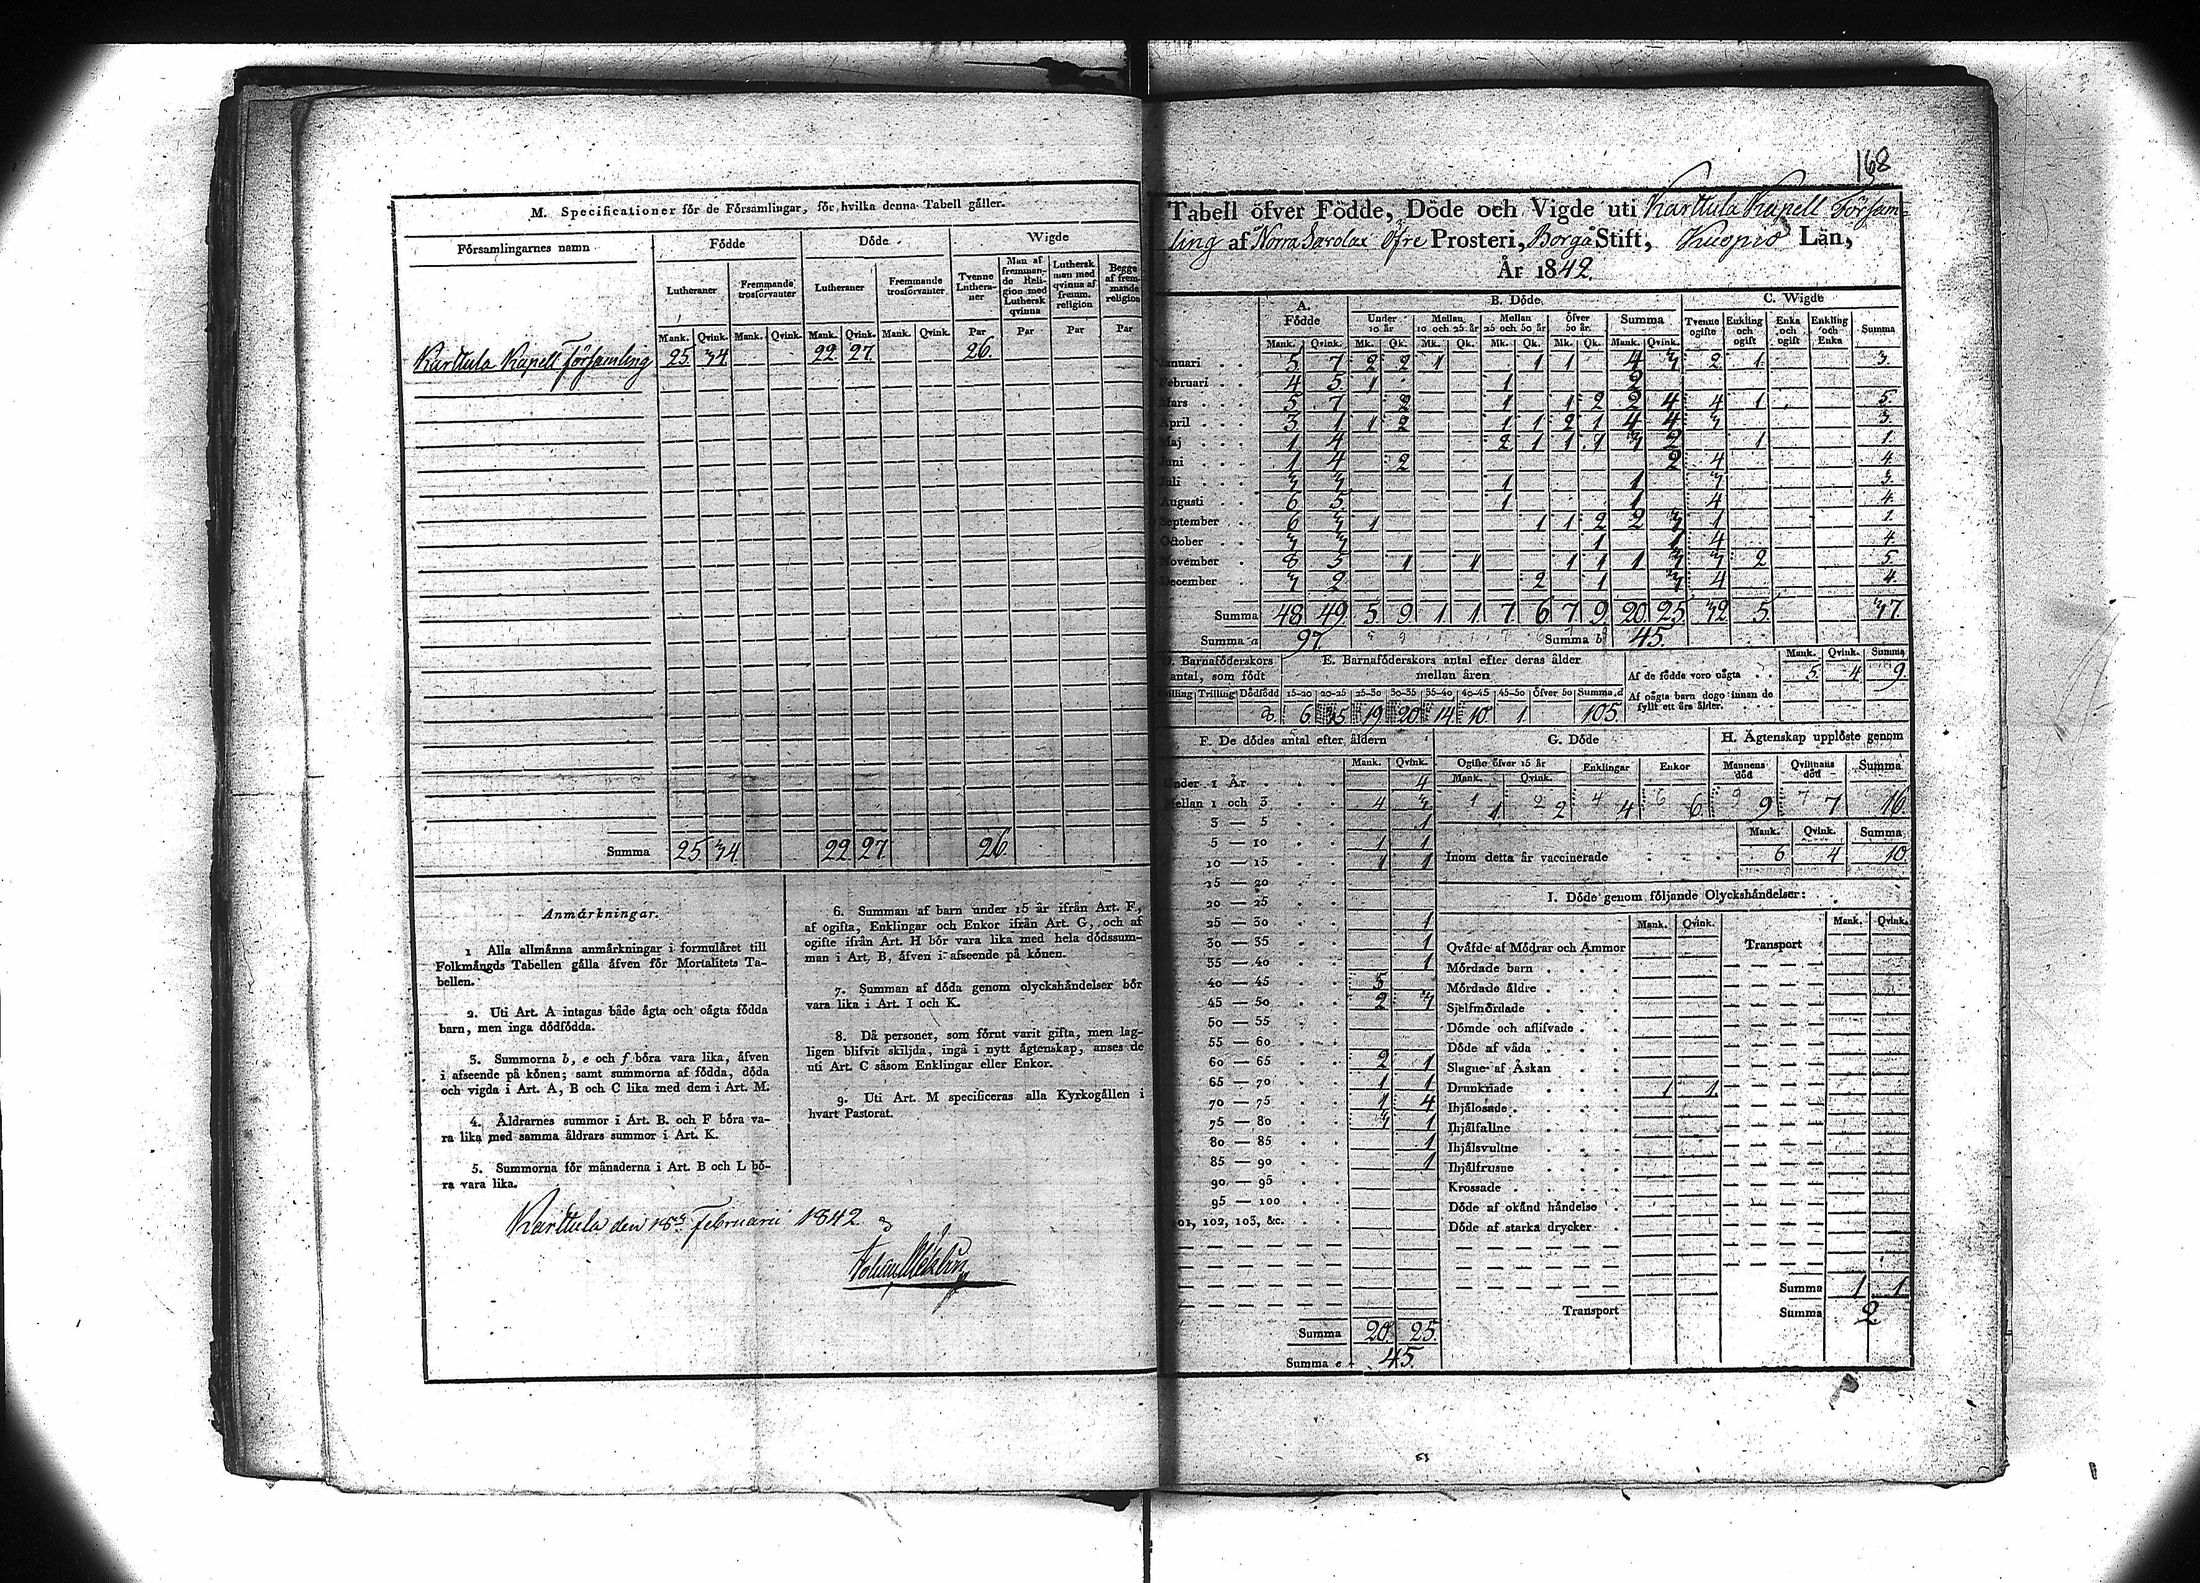 M. Specificationer för de Församlingar, för hvilka denna Tabell gäller.
Församlingarnes namn
Födde
Döde
Wigde
Lutheraner
Fremmande trosförvanter
Lutheraner
Fremmande trosförvanter
Tvenne Lutheraner
Man af fremmande Religion med Luthersk qvinna
Luthersk man med qvinna af fremm. religion
Begge af fremmande religion
Mank. Qvink. Mank. Qvink. Mank. Qvink. Mank. Qvink. Par Par Par Par
Karttula Kapell Församling 25 34 22 27 26.
Summa 25 34 22 27 26
Anmärkningar.
1 Alla allmänna anmärkningar i formuläret till
Folkmängds Tabellen gälla äfven för Mortalitets Ta-
bellen.
2. Uti Art. A intagas både ägta och oägta födda
barn, men inga dödfödda.
3. Summorna b, e och f böra vara lika, äfven
i afseende på könen; samt summorna af födda, döda
och vigda i Art. A, B och C lika med dem i Art. M.
4. Åldrarnes summor i Art. B. och F böra va-
ra lika med samma åldrars summor i Art. K.
5. Summorna för månaderna i Art. B och L bö-
ra vara lika.
6. Summan af barn under 15 år ifrån Art. F,
af ogifta, Enklingar och Enkor ifrån Art. G, och af
ogifte ifrån Art. H bör vara lika med hela dödssum-
man i Art. B, äfven i afseende på könen.
7. Summan af döda genom olyckshändelser bör
vara lika i Art. I och K.
8. Då personer, som förut varit gifta, men lag-
ligen blifvit skiljda, ingå i nytt ägtenskap, anses de
uti Art. C såsom Enklingar eller Enkor.
9. Uti Art. M specificeras alla Kyrkogällen i
hvart Pastorat.
Karttula den 18 Februarii 1842.
168
Tabell öfver Födde, Döde och Vigde uti Karttula Kapell Försam-
ling af Norra Savolax Öfre Prosteri, Borgå Stift, Kuopio Län,
År 1842.
A. Födde
B. Döde
C. Wigde
Under 10 år
Mellan 10 och 25 år
Mellan 25 och 50 år
Öfver 50 år.
Summa
Tvenne ogifte
Enkling och ogift
Enka och ogift
Enkling och Enka
Summa
Mank. Qvink. Mk. Qk. Mk. Qk. Mk. Qk. Mk. Qk. Mank. Qvink.
Januari 5 7 2 2 1 1 1 4 3 2 1 3.
Februari 4 5 1 1 2
Mars 5 7 2 1 1 2 2 4 4 1 5.
April 3 1 1 2 1 1 2 1 4 4 3 3.
Maj 1 4 2 1 1 1 3 2 1 1.
Juni 1 4 2 2 4 4
Juli 3 3 1 1 3 3.
Augusti 6 5 1 1 4 4.
September 6 3 1 1 1 2 2 3 1 1.
October 3 3 1 1 4 4.
November 8 5 1 1 1 1 1 3 3 2 5.
December 3 2 2 1 3 4 4.
Summa 48 49 5 9 1 1 7 6 7 9 20 25 32 5 37
Summa a 97. Summa b 45.
D. Barnaföderskors antal, som födt
E. Barnaföderskors antal efter deras ålder mellan åren
Mank. Qvink. Summa
Af de födde voro oägta 5 4 9.
Af oägta barn dogo innan de fyllt ett års ålder.
Tvilling Trilling Dödfödd 15-20 20-25 25-30 30-35 35-40 40-45 45-50 Öfver 50 Summa d
6 35 19 20 14 10 1 105
F. De dödes antal efter åldern
Mank. Qvink.
Under 1 År 4
Mellan 1 och 3 4 3
3 — 5 1
5 — 10 1 1
10 — 15 1 1
15 — 20
20 — 25
25 — 30 1
30 — 35 1
35 — 40 1
40 — 45 5
45 — 50 2 3
50 — 55
55 — 60
60 — 65 2 1
65 — 70 1 1
70 — 75 1 4
75 — 80 3 1
80 — 85 1
85 — 90 1
90 — 95
95 — 100
101, 102, 103, &c.
Summa 20. 25.
Summa e 45.
G. Döde
Ogifte öfver 15 år
Enklingar
Enkor
Mank. Qvink.
1 2 4 6
H. Ägtenskap upplöste genom
Mannens död
Qvinnans död
Summa
9 7 16.
Mank. Qvink. Summa
Inom detta år vaccinerade 6 4 10.
I. Döde genom följande Olyckshändelser:
Mank. Qvink. Mank. Qvink.
Qväfde af Mödrar och Ammor
Mördade barn
Mördade äldre
Sjelfmördade
Dömde och aflifvade
Döde af våda
Slagne af Åskan
Drunknade 1 1.
Ihjälosade
Ihjälfallne
Ihjälsvultne
Ihjälfrusne
Krossade
Döde af okänd händelse
Döde af starka drycker
Transport
Transport
Summa 1 1
Summa 2